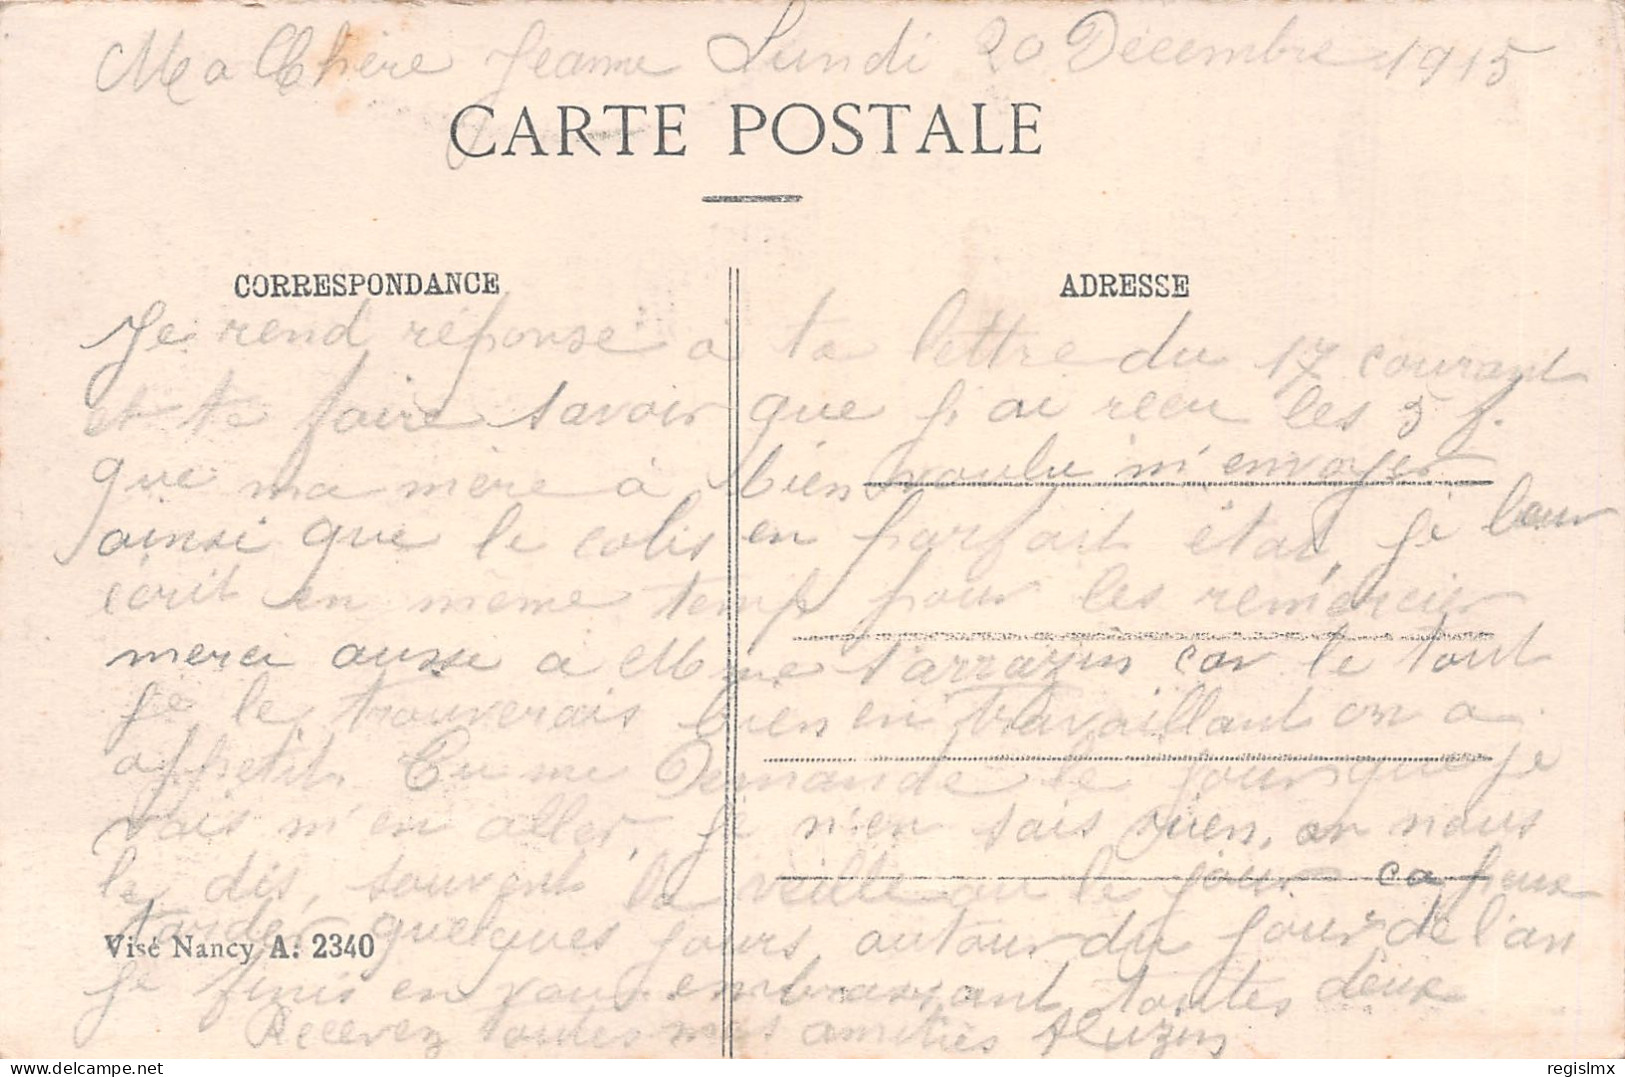 Ma Chère Jeanne Lundi 20 Décembre 1915
CARTE POSTALE
CORRESPONDANCE
ADRESSE
Je rend réponse à ta lettre du 17 courant
et te faire savoir que j'ai recu les 5 f.
que ma mère à bien voulu m'envoyer
ainsi que le colis en parfait état, je leur
écrit en même temp pour les remércier
merci aussi à Mme Sarrazin car le tout
je le trouverais bien en travaillant on a
appetit. Tu me Demande le jour que je
vais m'en aller, je n'en sais rien, on nous
le dis, souvent la veille ou le jour ca peux
tarder quelques jours autour du jour de l'an
Visé Nancy A: 2340
je finis en vous embrassant toutes deux
Recevez toutes mes amitiés
delcampe.net
regislmx